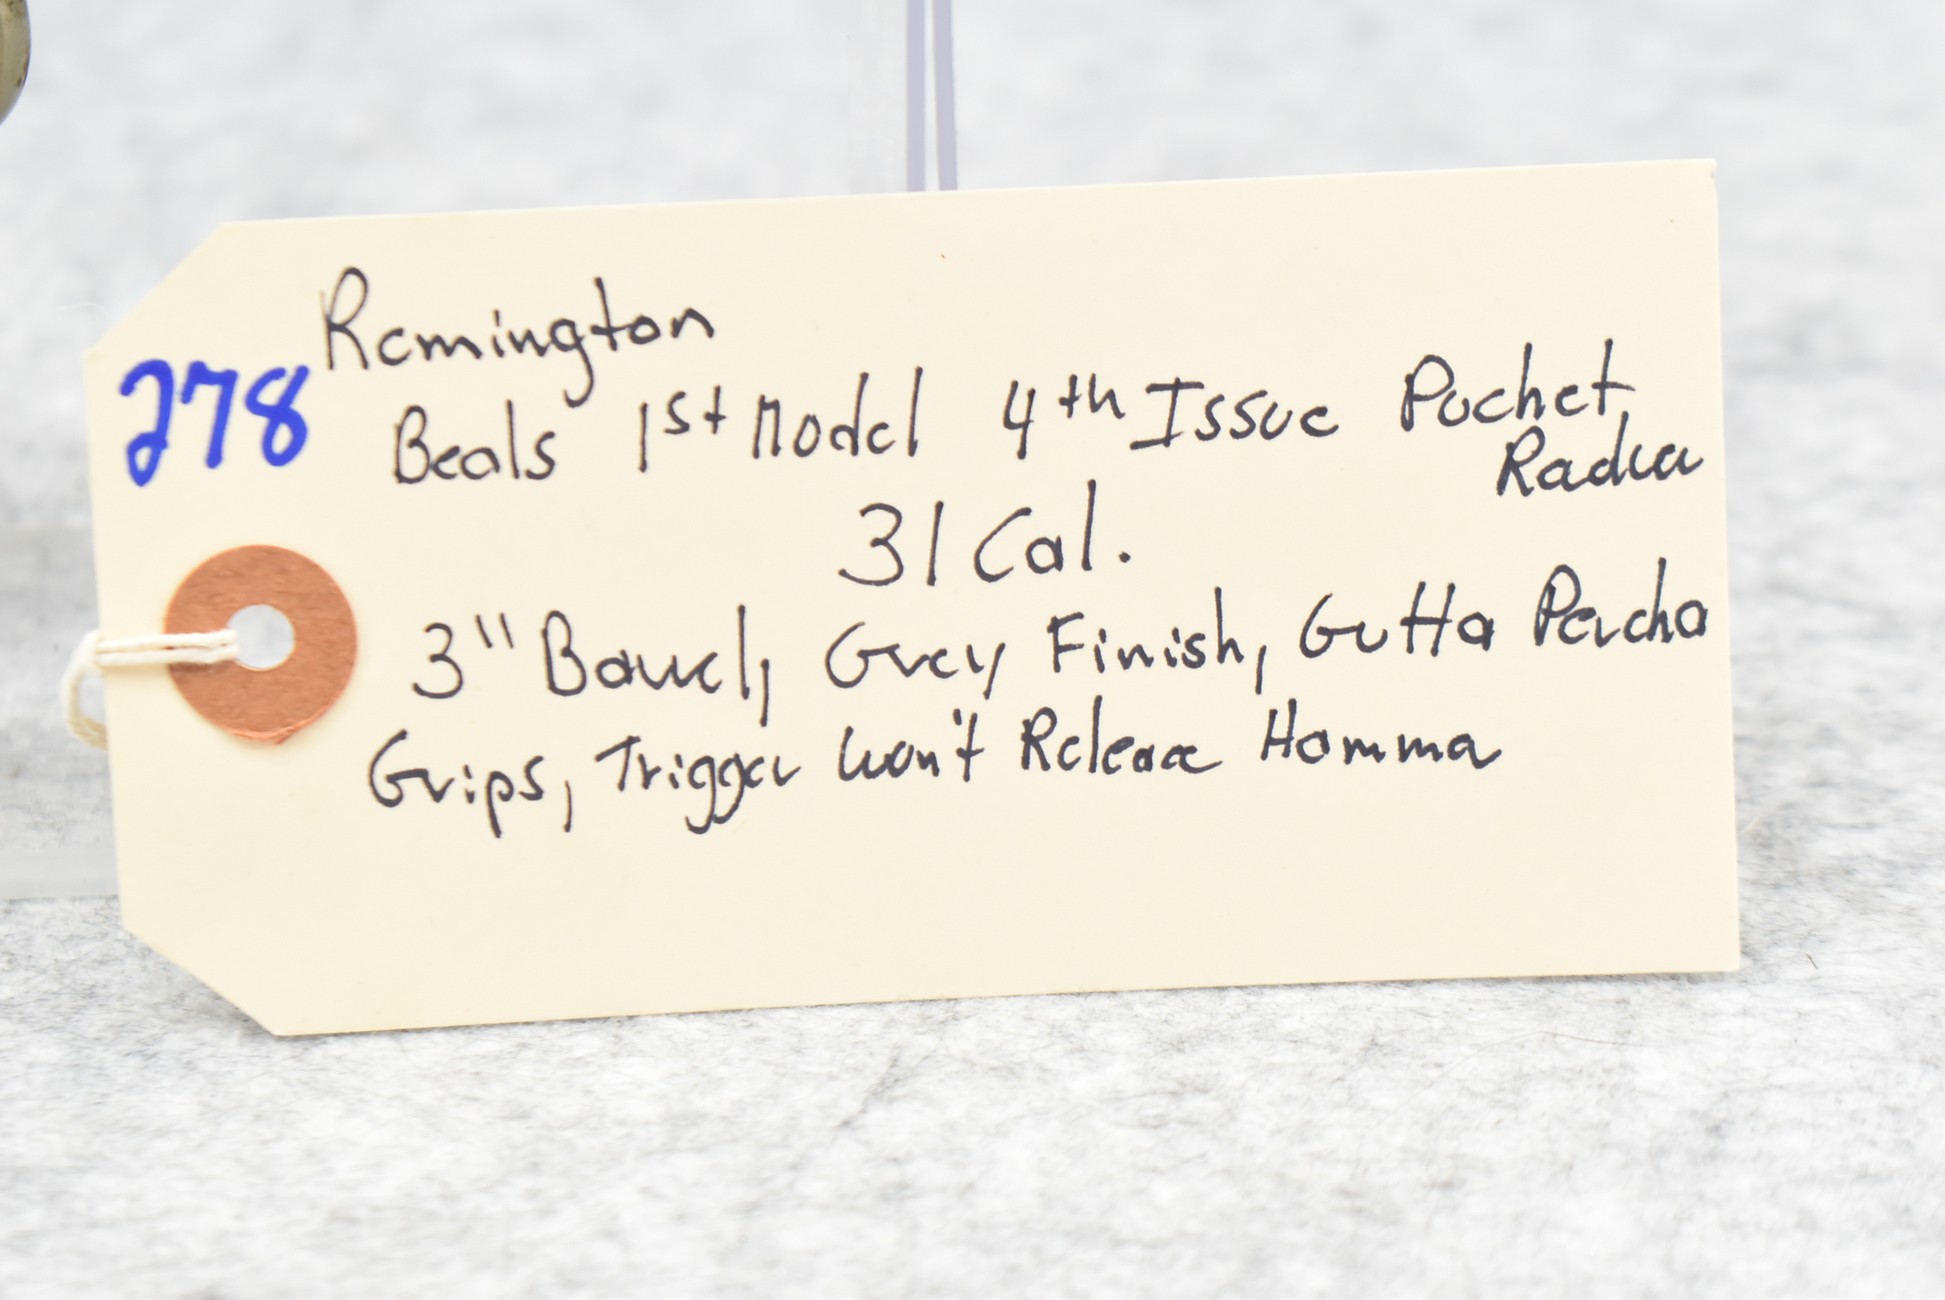 278
Remington
Beals 1st Model 4th Issue Pocket,
31 Cal.
3" Barrel, Grey Finish, Gutta Percha
Grips, Trigger Won't Release Hammer